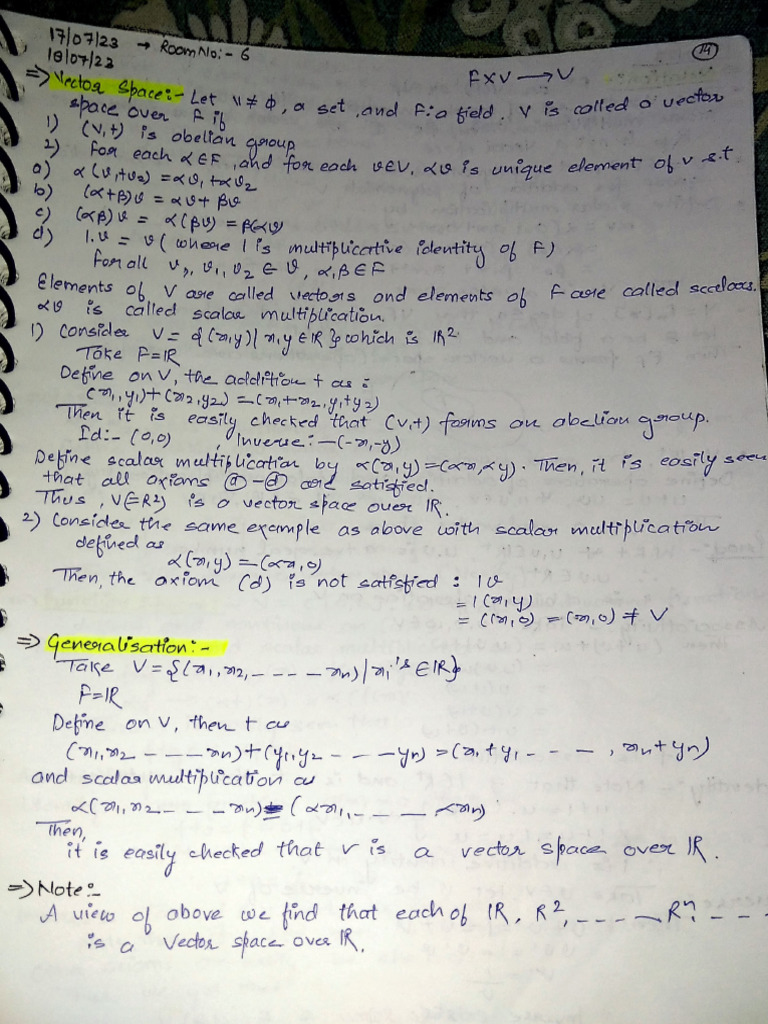 17/07/23 → Room No:- 6
18/07/23
14
F×V → V
⇒ Vector Space:- Let V ≠ ϕ, a set, and F: a field. V is called a vector
space over F if
1) (V,+) is abelian group
2) for each α∈F, and for each v∈V, αv is unique element of v s.t
a) α(v₁+v₂) = αv₁+αv₂
b) (α+β)v = αv+βv
c) (αβ)v = α(βv) = β(αv)
d) 1.v = v (where 1 is multiplicative identity of F)
for all v, v₁, v₂ ∈ v, α,β∈F
Elements of V are called vectors and elements of F are called sccelars.
αv is called scalar multiplication.
1) Consider V = {(x,y)| x,y ∈ IR} which is IR²
Take F=IR
Define on V, the addition + as :
(x₁,y₁)+(x₂,y₂) = (x₁+x₂,y₁+y₂)
Then it is easily checked that (v,+) forms an abelian group.
Id:- (0,0) , Inverse:- (-x,-y)
Define scalar multiplication by α(x,y)=(αx,αy). Then, it is easily seen
that all axioms ⓐ-ⓓ are satisfied.
Thus, V(=R²) is a vector space over IR.
2) Consider the same example as above with scalar multiplication
defined as
α(x,y) = (αx,0)
Then, the axiom (d) is not satisfied : 1v
= 1(x,y)
= (1x,0) = (x,0) ≠ V
⇒ Generalisation:-
Take V = {(x₁,x₂,- - - - xn)| xi's ∈ IR}
F=IR
Define on V, then + as
(x₁,x₂ - - - - xn)+(y₁,y₂ - - - yn) = (x₁+y₁ - - - - , xn+yn)
and scalar multiplication as
α(x₁,x₂ - - - xn) = (αx₁,- - - - αxn)
Then,
it is easily checked that v is a vector space over IR.
⇒ Note:-
A view of above we find that each of IR, R², - - - - Rⁿ - - -
is a Vector space over IR.